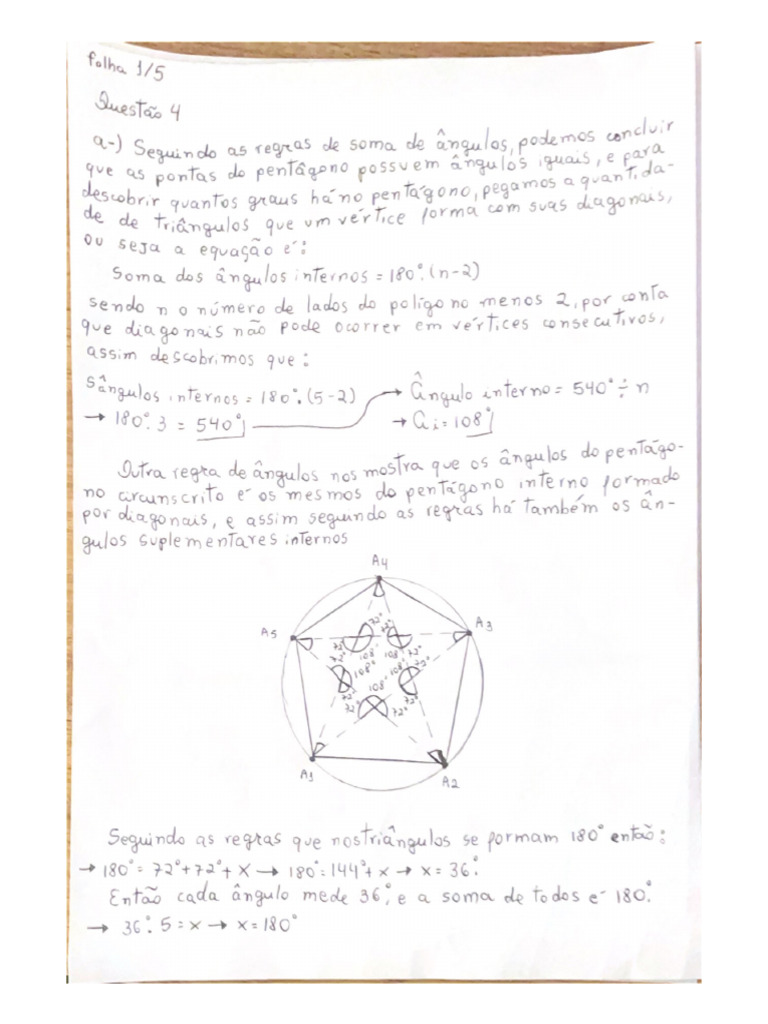 folha 1/5
Questão 4
a-) Seguindo as regras de soma de ângulos, podemos concluir
que as pontas do pentâgono possuem ângulos iguais, e para
descobrir quantos graus há no pentágono, pegamos a quantida-
de de triângulos que um vértice forma com suas diagonais,
ou seja a equação é:
Soma dos ângulos internos = 180°.(n-2)
sendo n o número de lados do polígono menos 2, por conta
que diagonais não pode ocorrer em vértices consecutivos,
assim descobrimos que:
Sângulos internos = 180°.(5-2) → Ângulo interno = 540° ÷ n
→ 180°. 3 = 540° → ai = 108°
Outra regra de ângulos nos mostra que os ângulos do pentágo-
no circunscrito é os mesmos do pentágono interno formado
por diagonais, e assim segundo as regras há também os ân-
gulos suplementares internos
A4
A5 A3
72° 72°
72° 108° 108° 72°
72° 108° 108° 72°
72° 108° 72°
72° 72°
A1 A2
Seguindo as regras que nos triângulos se formam 180° então:
→ 180° = 72° + 72° + x → 180° = 144° + x → x = 36°.
Então cada ângulo mede 36°, e a soma de todos é 180°.
→ 36°. 5 = x → x = 180°